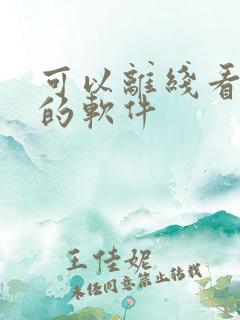 可以離綫看
的軟件
王佳妮
未经同意禁止转载